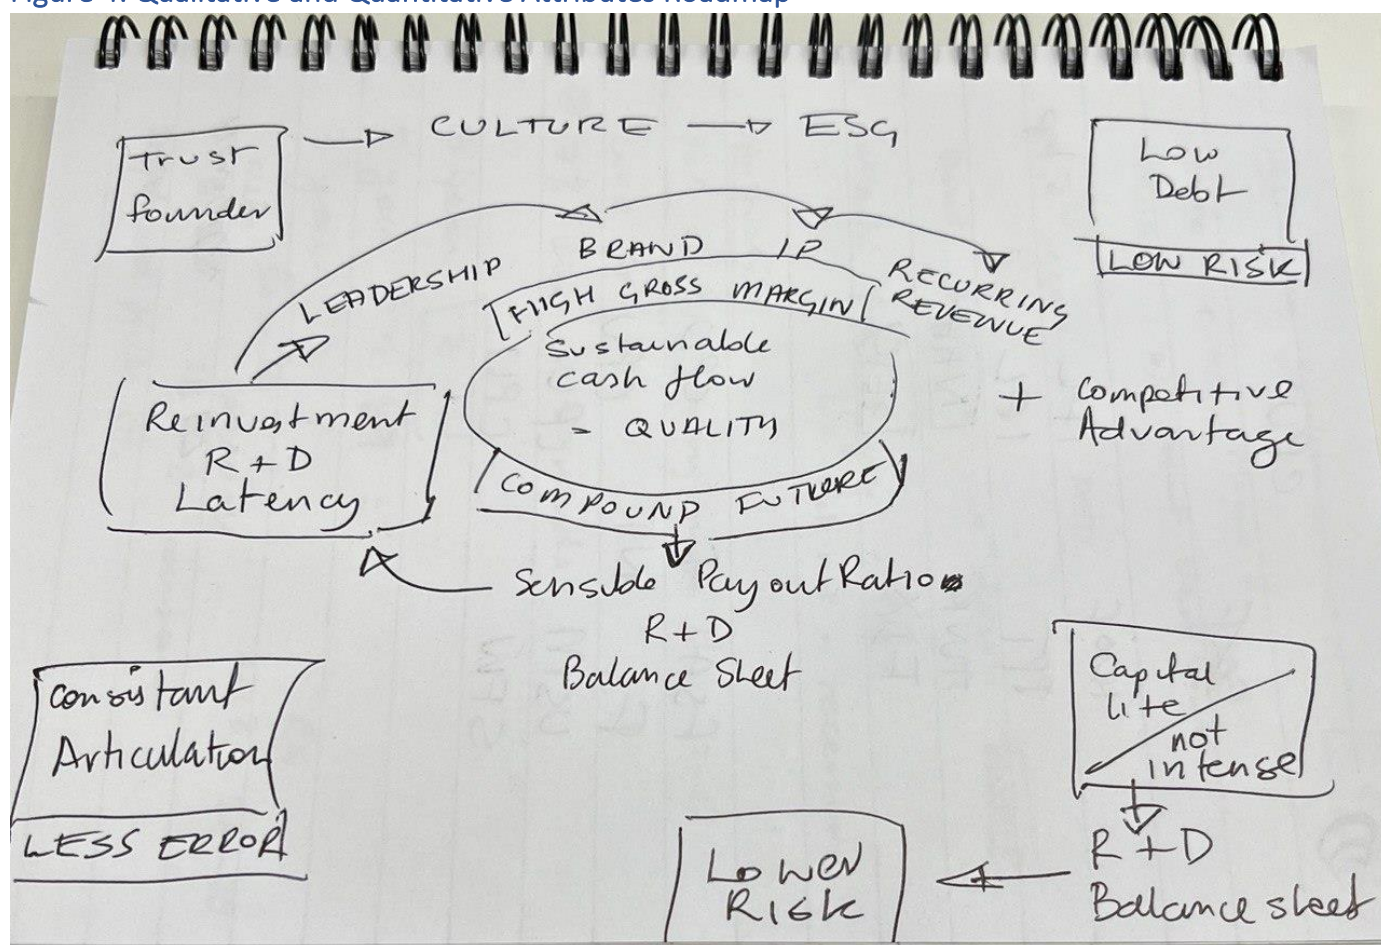 Figure 4: Qualitative and Quantitative Attributes Roadmap
Trust
founder
CULTURE
ESG
Low
Debt
LOW RISK
LEADERSHIP
BRAND
IP
RECURRING
REVENUE
HIGH GROSS MARGIN
Sustainable
cash flow
= QUALITY
COMPOUND FUTURE
+ Competitive
Advantage
Reinvestment
R + D
Latency
Sensible Payout Ratio
R + D
Balance Sheet
Consistant
Articulation
LESS ERROR
Capital
lite
not
intense
R + D
Balance sheet
Lower
RISK